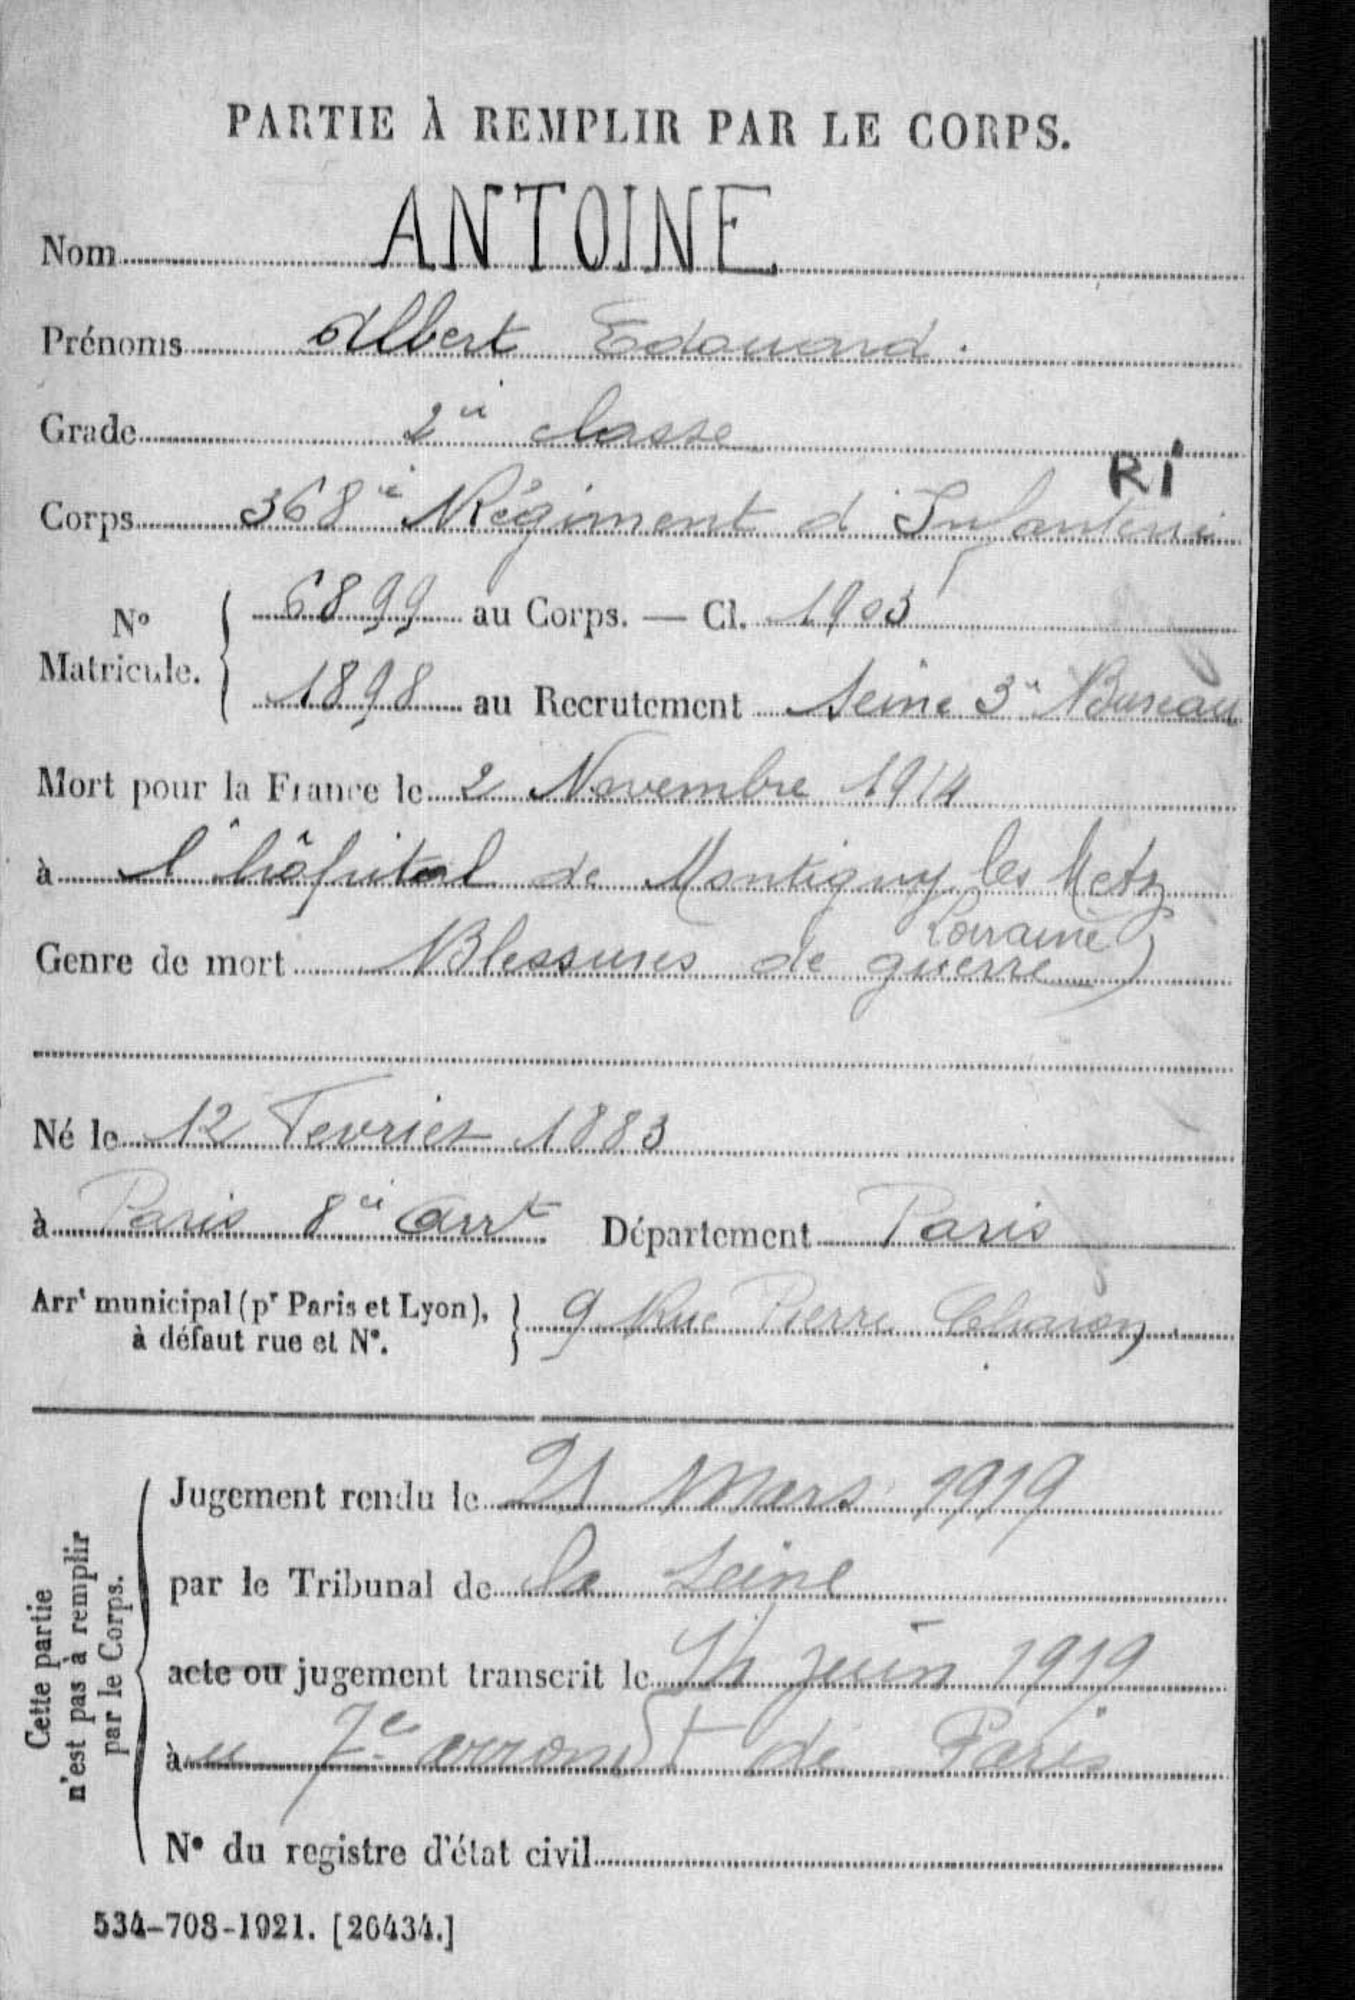 PARTIE À REMPLIR PAR LE CORPS.
Nom ANTOINE
Prénoms Albert Edouard.
Grade 2e classe
RI
Corps 368e Régiment d'Infanterie
No Matricule. { 6899 au Corps. — Cl. 1903
1898 au Recrutement Seine 3e Bureau
Mort pour la France le 2 Novembre 1914
à l'hôpital de Montigny les Metz
Lorraine)
Genre de mort Blessures de guerre
Né le 12 Fevrier 1883
à Paris 8e Arrt Département Paris
Arrt municipal (pr Paris et Lyon), à défaut rue et No. } 9 Rue Pierre Charon.
Cette partie n'est pas à remplir par le Corps.
Jugement rendu le 21 Mars 1919
par le Tribunal de la Seine
acte ou jugement transcrit le 14 juin 1919
à u 7e arrondt de Paris
No du registre d'état civil
534-708-1921. [26434.]